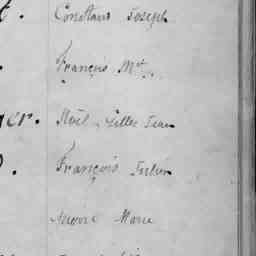 t. Constans Joseph
François Mat.
er. Noël Gilles Jean
. François Julien
Marie